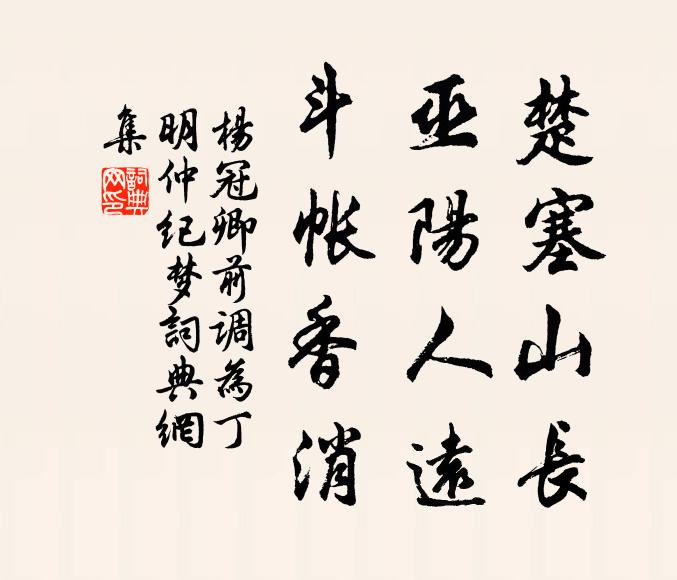 楚塞山長
巫陽人遠
斗帳香消
楊冠卿前调為丁
明仲纪梦詞典網
集
詞典网印